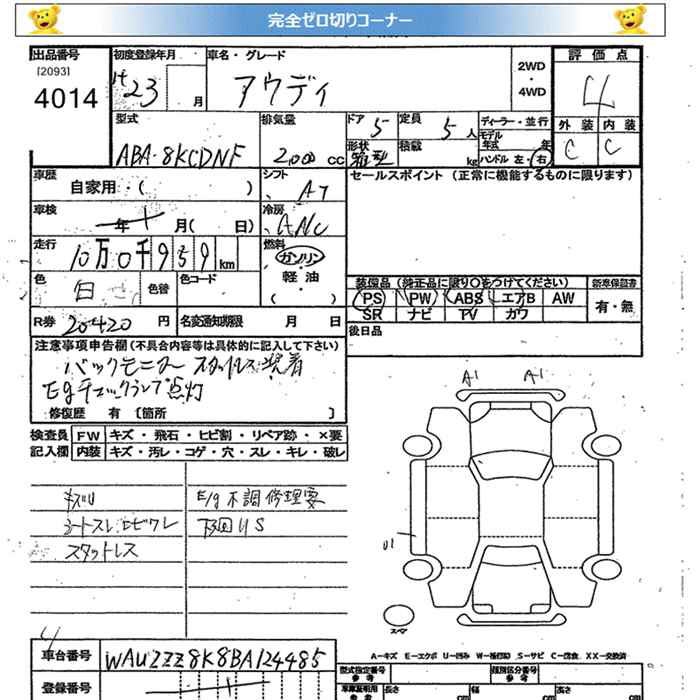 完全ゼロ切りコーナー
出品番号 初度登録年月 車名・グレード 2WD・4WD 評価点
[2093]
4014 H23 月 アウディ 4
外装 内装
C C
型式 排気量 ドア 5 定員 5人 ディーラー・並行
ABA-8KCDNF 2,000 CC 形状 箱型 積載 kg モデル年式 年
ハンドル 左・右
車歴 自家用・( ) シフト AT セールスポイント (正常に機能するものに限ります)
車検 年 月( 日) 冷房
走行 10万0千959km 燃料 ガソリン
軽油
( )
色 白 色替 色コード
装備品 (純正品に限り○をつけてください) 新車保証書
PS PW ABS エアB AW 有・無
SR ナビ TV カワ
R券 20420円 名変通知期限 月 日 後日品
注意事項申告欄 (不具合内容等は具体的に記入して下さい)
バックモニター スタットレス装着
Egチェックランプ点灯
修復歴 有 〔箇所 〕
A1 A1
検査員 FW キズ・飛石・ヒビ割・リペア跡・×要
記入欄 内装 キズ・汚レ・コゲ・穴・スレ・キレ・破レ
キズU E/g不調修理要
シートスレヒビワレ 下回りS
スタットレス
U1
スペア
A-キズ E-エクボ U-凹み W-補修跡 S-サビ C-腐食 XX-交換済
4
車台番号 WAUZZZ8K8BA124485 型式指定番号 参考 類別区分番号 参考
登録番号 車庫証明用 参考 長さ cm 幅 cm 高さ cm